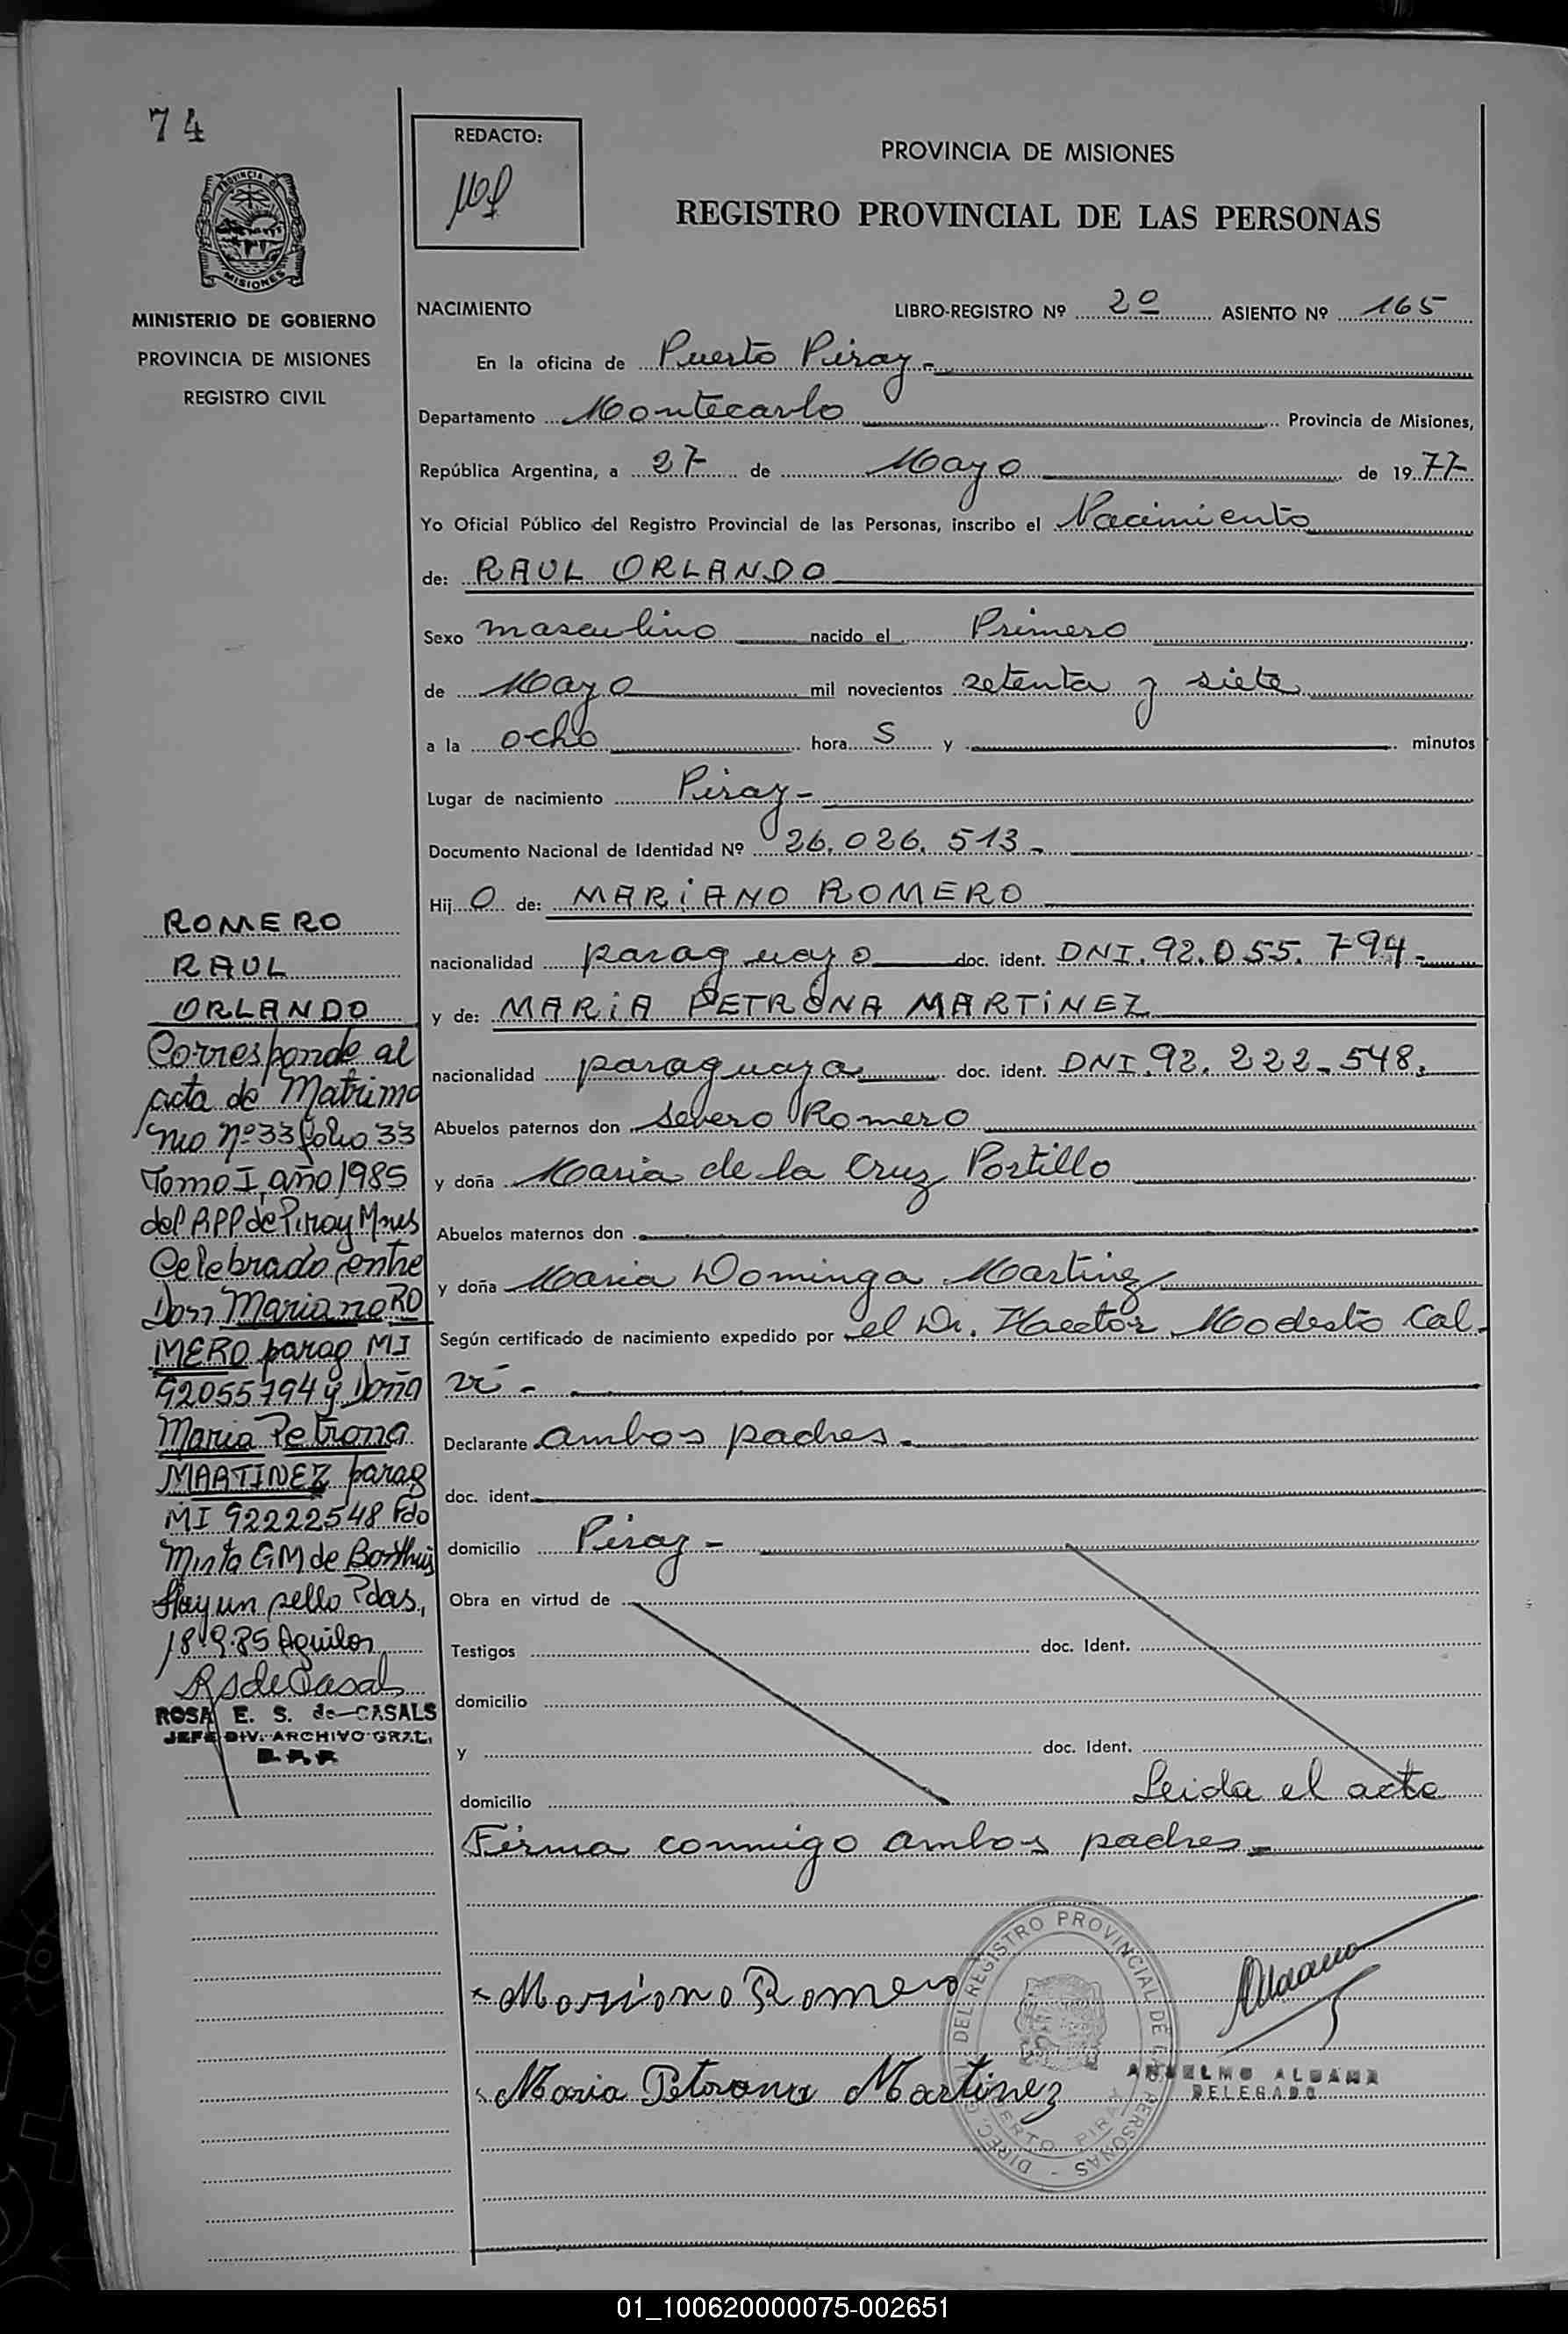 74
REDACTO:
PROVINCIA DE MISIONES
REGISTRO PROVINCIAL DE LAS PERSONAS
PROVINCIA DE
MISIONES
MINISTERIO DE GOBIERNO
PROVINCIA DE MISIONES
REGISTRO CIVIL
NACIMIENTO LIBRO-REGISTRO Nº 2º ASIENTO Nº 165
En la oficina de Puerto Piray -
Departamento Montecarlo Provincia de Misiones,
República Argentina, a 27 de Mayo de 1977
Yo Oficial Público del Registro Provincial de las Personas, inscribo el Nacimiento
de: RAUL ORLANDO
Sexo masculino nacido el Primero
de Mayo mil novecientos setenta y siete
a la ocho hora S y minutos
Lugar de nacimiento Piray -
Documento Nacional de Identidad Nº 26.026.513 -
Hij O de: MARIANO ROMERO
nacionalidad paraguayo doc. ident. DNI. 92.055.794 -
y de: MARIA PETRONA MARTINEZ
nacionalidad paraguaya doc. ident. DNI. 92.222.548.
Abuelos paternos don Severo Romero
y doña Maria de la Cruz Portillo
Abuelos maternos don
y doña Maria Dominga Martinez
Según certificado de nacimiento expedido por el Dr. Hector Modesto Cal-
vi -
Declarante ambos padres -
doc. ident.
domicilio Piray -
Obra en virtud de
Testigos doc. Ident.
domicilio
y doc. Ident.
domicilio Leida el acta
Firma conmigo ambos padres -
Mariano Romero
Maria Petrona Martinez
DIREC. DEL REGISTRO PROVINCIAL DE LAS PERSONAS -
PUERTO PIRAY
ANSELMO ALDANA
DELEGADO
ROMERO
RAUL
ORLANDO
Corresponde al
acta de Matrimo
nio Nº 33 folio 33
Tomo I, año 1985
del RPP de Piray Mnes
Celebrado entre
Don Mariano RO
MERO parag MI
92055794 y Doña
Maria Petrona
MARTINEZ parag
MI 92222548 Fdo
Mirta G M de
Hay un sello Pdas,
18.9.85
RS de Casals
ROSA E. S. de CASALS
JEFE DIV. ARCHIVO GRAL.
R. P. P.
01_100620000075-002651